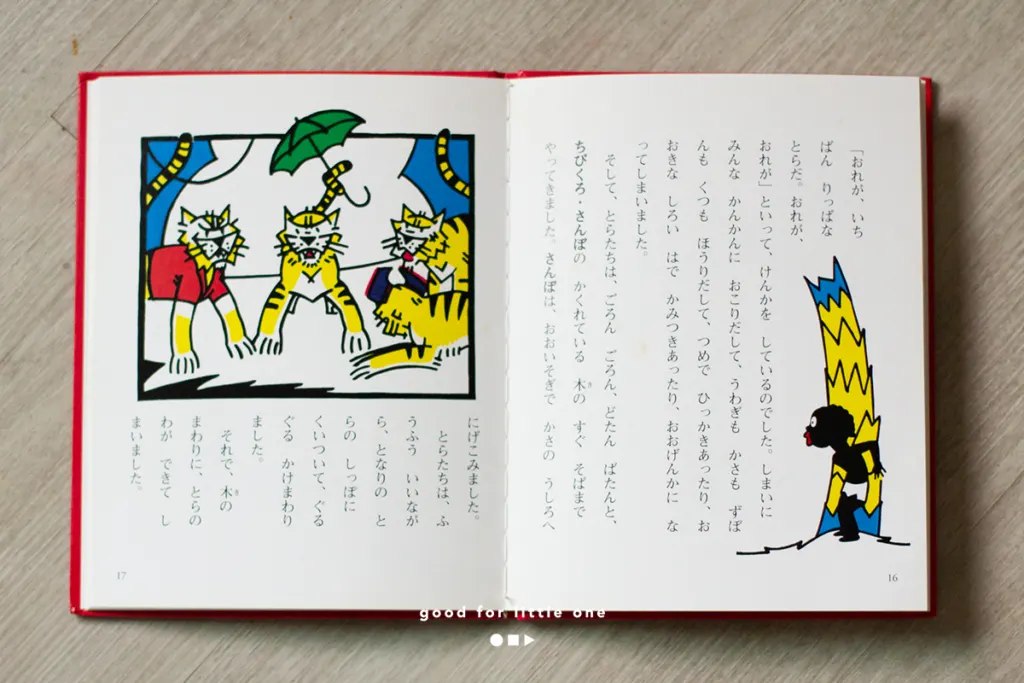 「おれが、いち
ばん　りっぱな
とらだ。おれが、
おれが」といって、けんかを　しているのでした。しまいに
みんな　かんかんに　おこりだして、うわぎも　かさも　ずぼ
んも　くつも　ほうりだして、つめで　ひっかきあったり、お
おきな　しろい　はで　かみつきあったり、おおげんかに　な
ってしまいました。
そして、とらたちは、ごろん　ごろん、どたん　ばたんと、
ちびくろ・さんぼの　かくれている　木の　すぐ　そばまで
やってきました。さんぼは、おおいそぎで　かさの　うしろへ
16
にげこみました。
とらたちは、ふ
うふう　いいなが
ら、となりの　と
らの　しっぽに
くいついて、ぐる
ぐる　かけまわり
ました。
それで、木の
まわりに、とらの
わが　できて　し
まいました。
17
good for little one